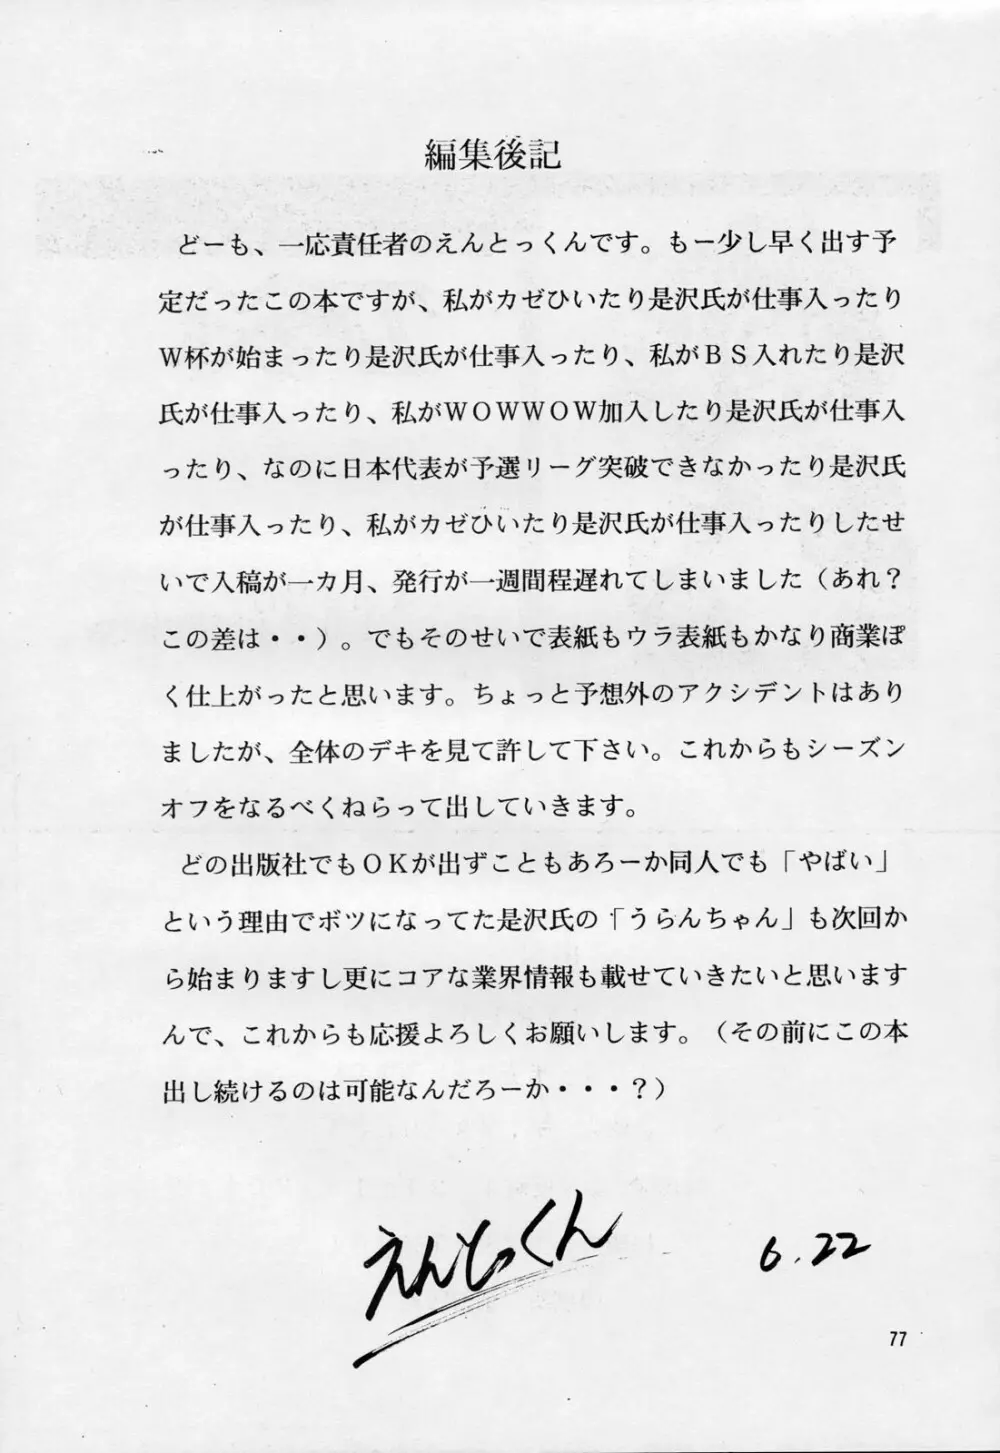 編集後記
どーも、一応責任者のえんとっくんです。もー少し早く出す予
定だったこの本ですが、私がカゼひいたり是沢氏が仕事入ったり
W杯が始まったり是沢氏が仕事入ったり、私がBS入れたり是沢
氏が仕事入ったり、私がWOWWOW加入したり是沢氏が仕事入
ったり、なのに日本代表が予選リーグ突破できなかったり是沢氏
が仕事入ったり、私がカゼひいたり是沢氏が仕事入ったりしたせ
いで入稿が一カ月、発行が一週間程遅れてしまいました（あれ？
この差は・・）。でもそのせいで表紙もウラ表紙もかなり商業ぽ
く仕上がったと思います。ちょっと予想外のアクシデントはあり
ましたが、全体のデキを見て許して下さい。これからもシーズン
オフをなるべくねらって出していきます。
どの出版社でもOKが出ずこともあろーか同人でも「やばい」
という理由でボツになってた是沢氏の「うらんちゃん」も次回か
ら始まりますし更にコアな業界情報も載せていきたいと思います
んで、これからも応援よろしくお願いします。（その前にこの本
出し続けるのは可能なんだろーか・・・？）
えんとっくん
6.22
77